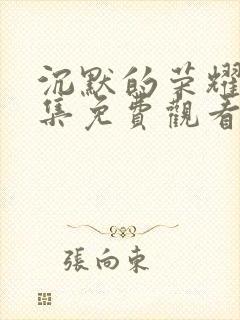 沉默的荣耀
集免費觀看
張向東